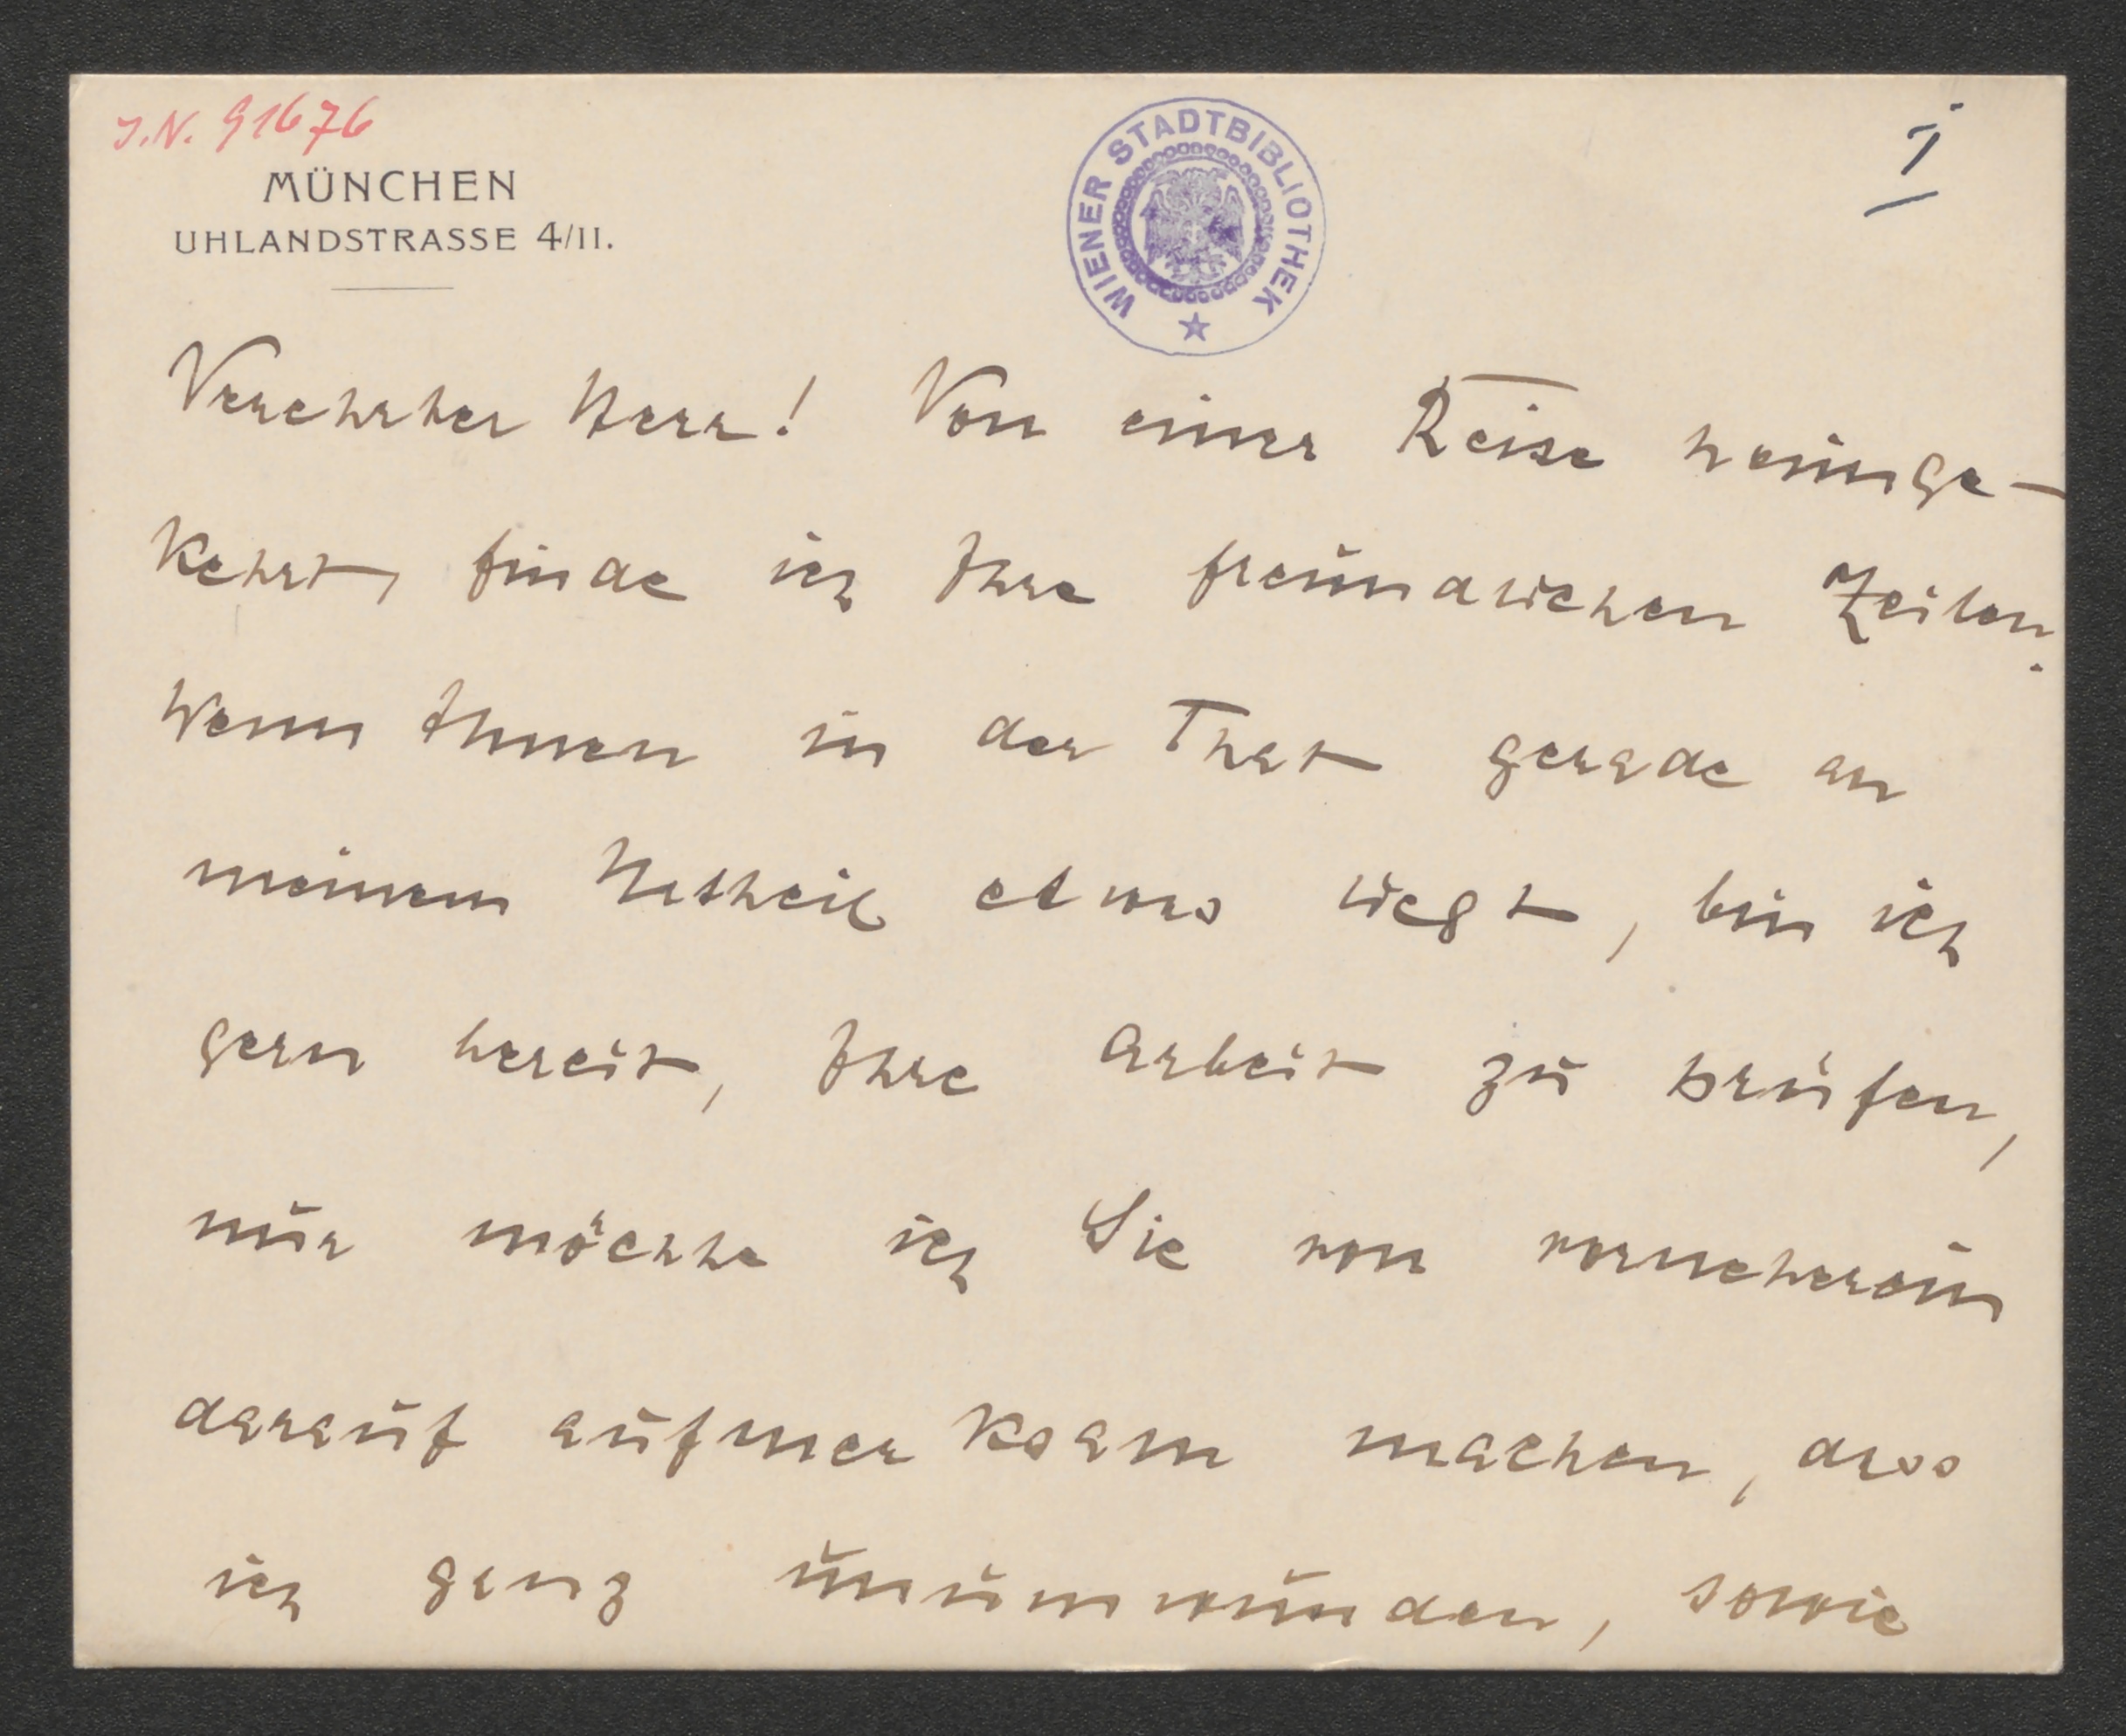 J.N. 91676
MÜNCHEN
UHLANDSTRASSE 4/II.
WIENER STADTBIBLIOTHEK
1
Verehrter Herr! Von einer Reise heimge-
kehrt, finde ich Ihre freundlichen Zeilen.
Wenn Ihnen in der That gerade an
meinem Urtheil etwas liegt, bin ich
gern bereit, Ihre Arbeit zu prüfen,
nur möchte ich Sie von vorneherein
darauf aufmerksam machen, dass
ich ganz unumwunden, sowie